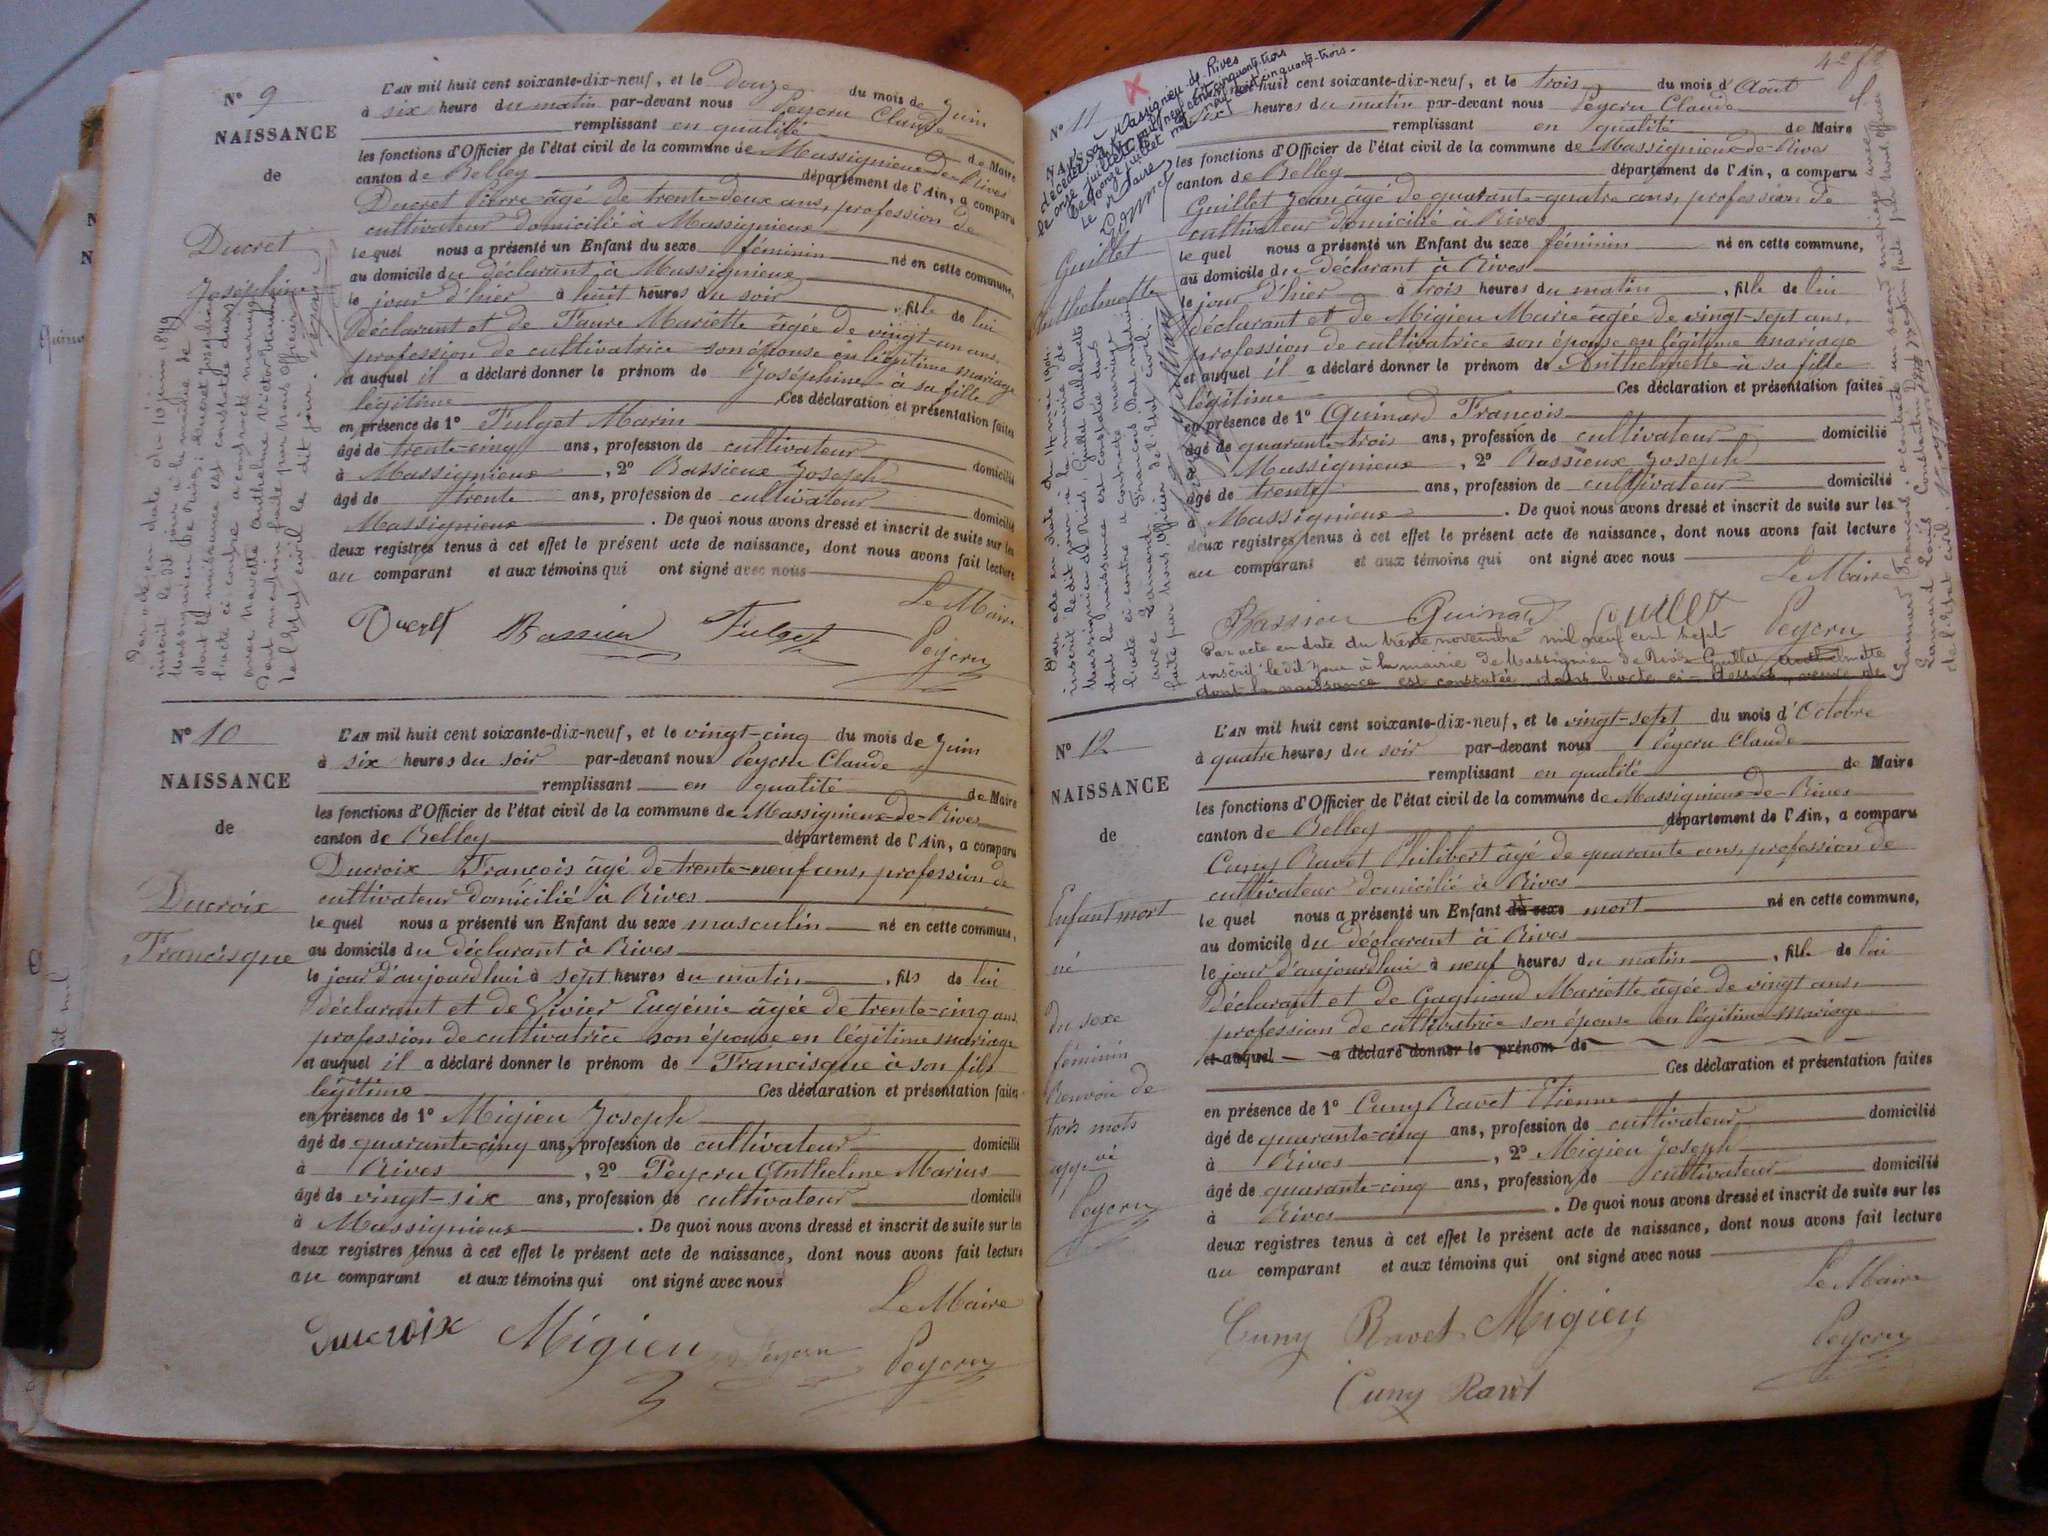 Nº 9
NAISSANCE
de
Ducret
Joséphine
L'AN mil huit cent soixante-dix-neuf, et le Douze du mois de Juin
à six heure du matin par-devant nous Peycru Claude
remplissant en qualité de Maire
les fonctions d'Officier de l'état civil de la commune de Massignieux-de-Rives
canton de Belley département de l'Ain, a comparu
Ducret Pierre âgé de trente-deux ans, profession de
cultivateur domicilié à Massignieux
le quel nous a présenté un Enfant du sexe féminin né en cette commune,
au domicile du déclarant à Massignieux
le jour d'hier à huit heures du soir, fille de lui
déclarant et de Faure Mariette âgée de vingt-un ans
profession de cultivatrice son épouse en légitime mariage
et auquel il a déclaré donner le prénom de Joséphine à sa fille
légitime Ces déclaration et présentation faites
en présence de 1º Fulget Marin
âgé de trente-cinq ans, profession de cultivateur domicilié
à Massignieux, 2º Bassieux Joseph
âgé de trente ans, profession de cultivateur domicilié
Massignieux. De quoi nous avons dressé et inscrit de suite sur les
deux registres tenus à cet effet le présent acte de naissance, dont nous avons fait lecture
au comparant et aux témoins qui ont signé avec nous
Le Maire
Bassieu Fulget Peycru
Par acte en date du 10 juin 1899
inscrit le dit jour à la mairie de
Massignieu de Rives, Ducret Joséphine
dont la naissance est constatée dans
l'acte ci contre a contracté mariage
avec
de l'Etat civil le dit jour.
Nº 10
NAISSANCE
de
Ducroix
Francisque
L'AN mil huit cent soixante-dix-neuf, et le vingt-cinq du mois de Juin
à six heures du soir par-devant nous Peycru Claude
remplissant en qualité de Maire
les fonctions d'Officier de l'état civil de la commune de Massignieux-de-Rives
canton de Belley département de l'Ain, a comparu
Ducroix François âgé de trente-neuf ans, profession de
cultivateur domicilié à Rives
le quel nous a présenté un Enfant du sexe masculin né en cette commune,
au domicile du déclarant à Rives
le jour d'aujourdhui à sept heures du matin, fils de lui
déclarant et de Livier Eugénie âgée de trente-cinq ans
profession de cultivatrice son épouse en légitime mariage
et auquel il a déclaré donner le prénom de Francisque à son fils
légitime Ces déclaration et présentation faites
en présence de 1º Migieu Joseph
âgé de quarante-cinq ans, profession de cultivateur domicilié
à Rives, 2º Peycru Anthelme Marius
âgé de vingt-six ans, profession de cultivateur domicilié
à Massignieux. De quoi nous avons dressé et inscrit de suite sur les
deux registres tenus à cet effet le présent acte de naissance, dont nous avons fait lecture
au comparant et aux témoins qui ont signé avec nous
Le Maire
Ducroix Migieu Peycru Peycru
Nº 11
NAISSANCE
Guillet
Anthelmette
L'AN mil huit cent soixante-dix-neuf, et le trois du mois d'Août
à six heures du matin par-devant nous Peycru Claude
remplissant en qualité de Maire
les fonctions d'Officier de l'état civil de la commune de Massignieux-de-Rives
canton de Belley département de l'Ain, a comparu
Guillet Jean âgé de quarante-quatre ans, profession de
cultivateur domicilié à Rives
le quel nous a présenté un Enfant du sexe féminin né en cette commune,
au domicile du déclarant à Rives
le jour d'hier à trois heures du matin, fille de lui
déclarant et de Migieu Marie âgée de vingt-sept ans,
profession de cultivatrice son épouse en légitime mariage
et auquel il a déclaré donner le prénom de Anthelmette à sa fille
légitime Ces déclaration et présentation faites
en présence de 1º Guinard François
âgé de quarante-trois ans, profession de cultivateur domicilié
Massignieux, 2º Bassieux Joseph
âgé de trente ans, profession de cultivateur domicilié
à Massignieux. De quoi nous avons dressé et inscrit de suite sur les
deux registres tenus à cet effet le présent acte de naissance, dont nous avons fait lecture
au comparant et aux témoins qui ont signé avec nous
Le Maire
Bassieu Guinard Guillet Peycru
Par acte en date du treize novembre mil neuf cent sept
inscrit le dit jour à la mairie de Massignieu de Rives Guillet Anthelmette
dont la naissance est constatée dans l'acte ci-dessus, veuve de
Nº 12
NAISSANCE
de
Enfant mort
né
du sexe
féminin
Renvoi de
trois mots
app vé
Peycru
L'AN mil huit cent soixante-dix-neuf, et le vingt-sept du mois d'Octobre
à quatre heures du soir par-devant nous Peycru Claude
remplissant en qualité de Maire
les fonctions d'Officier de l'état civil de la commune de Massignieux-de-Rives
canton de Belley département de l'Ain, a comparu
Cuny Ravet Philibert âgé de quarante ans, profession de
cultivateur domicilié à Rives
le quel nous a présenté un Enfant du sexe mort né en cette commune,
au domicile du déclarant à Rives
le jour d'aujourdhui à neuf heures du matin, fille de lui
déclarant et de Gagnioud Mariette âgée de vingt ans,
profession de cultivatrice son épouse en légitime mariage
et auquel a déclaré donner le prénom de
Ces déclaration et présentation faites
en présence de 1º Cuny Ravet Etienne
âgé de quarante-cinq ans, profession de cultivateur domicilié
à Rives, 2º Migieu Joseph
âgé de quarante-cinq ans, profession de cultivateur domicilié
à Rives. De quoi nous avons dressé et inscrit de suite sur les
deux registres tenus à cet effet le présent acte de naissance, dont nous avons fait lecture
au comparant et aux témoins qui ont signé avec nous
Le Maire
Cuny Ravet Migieu Peycru
Cuny Ravet